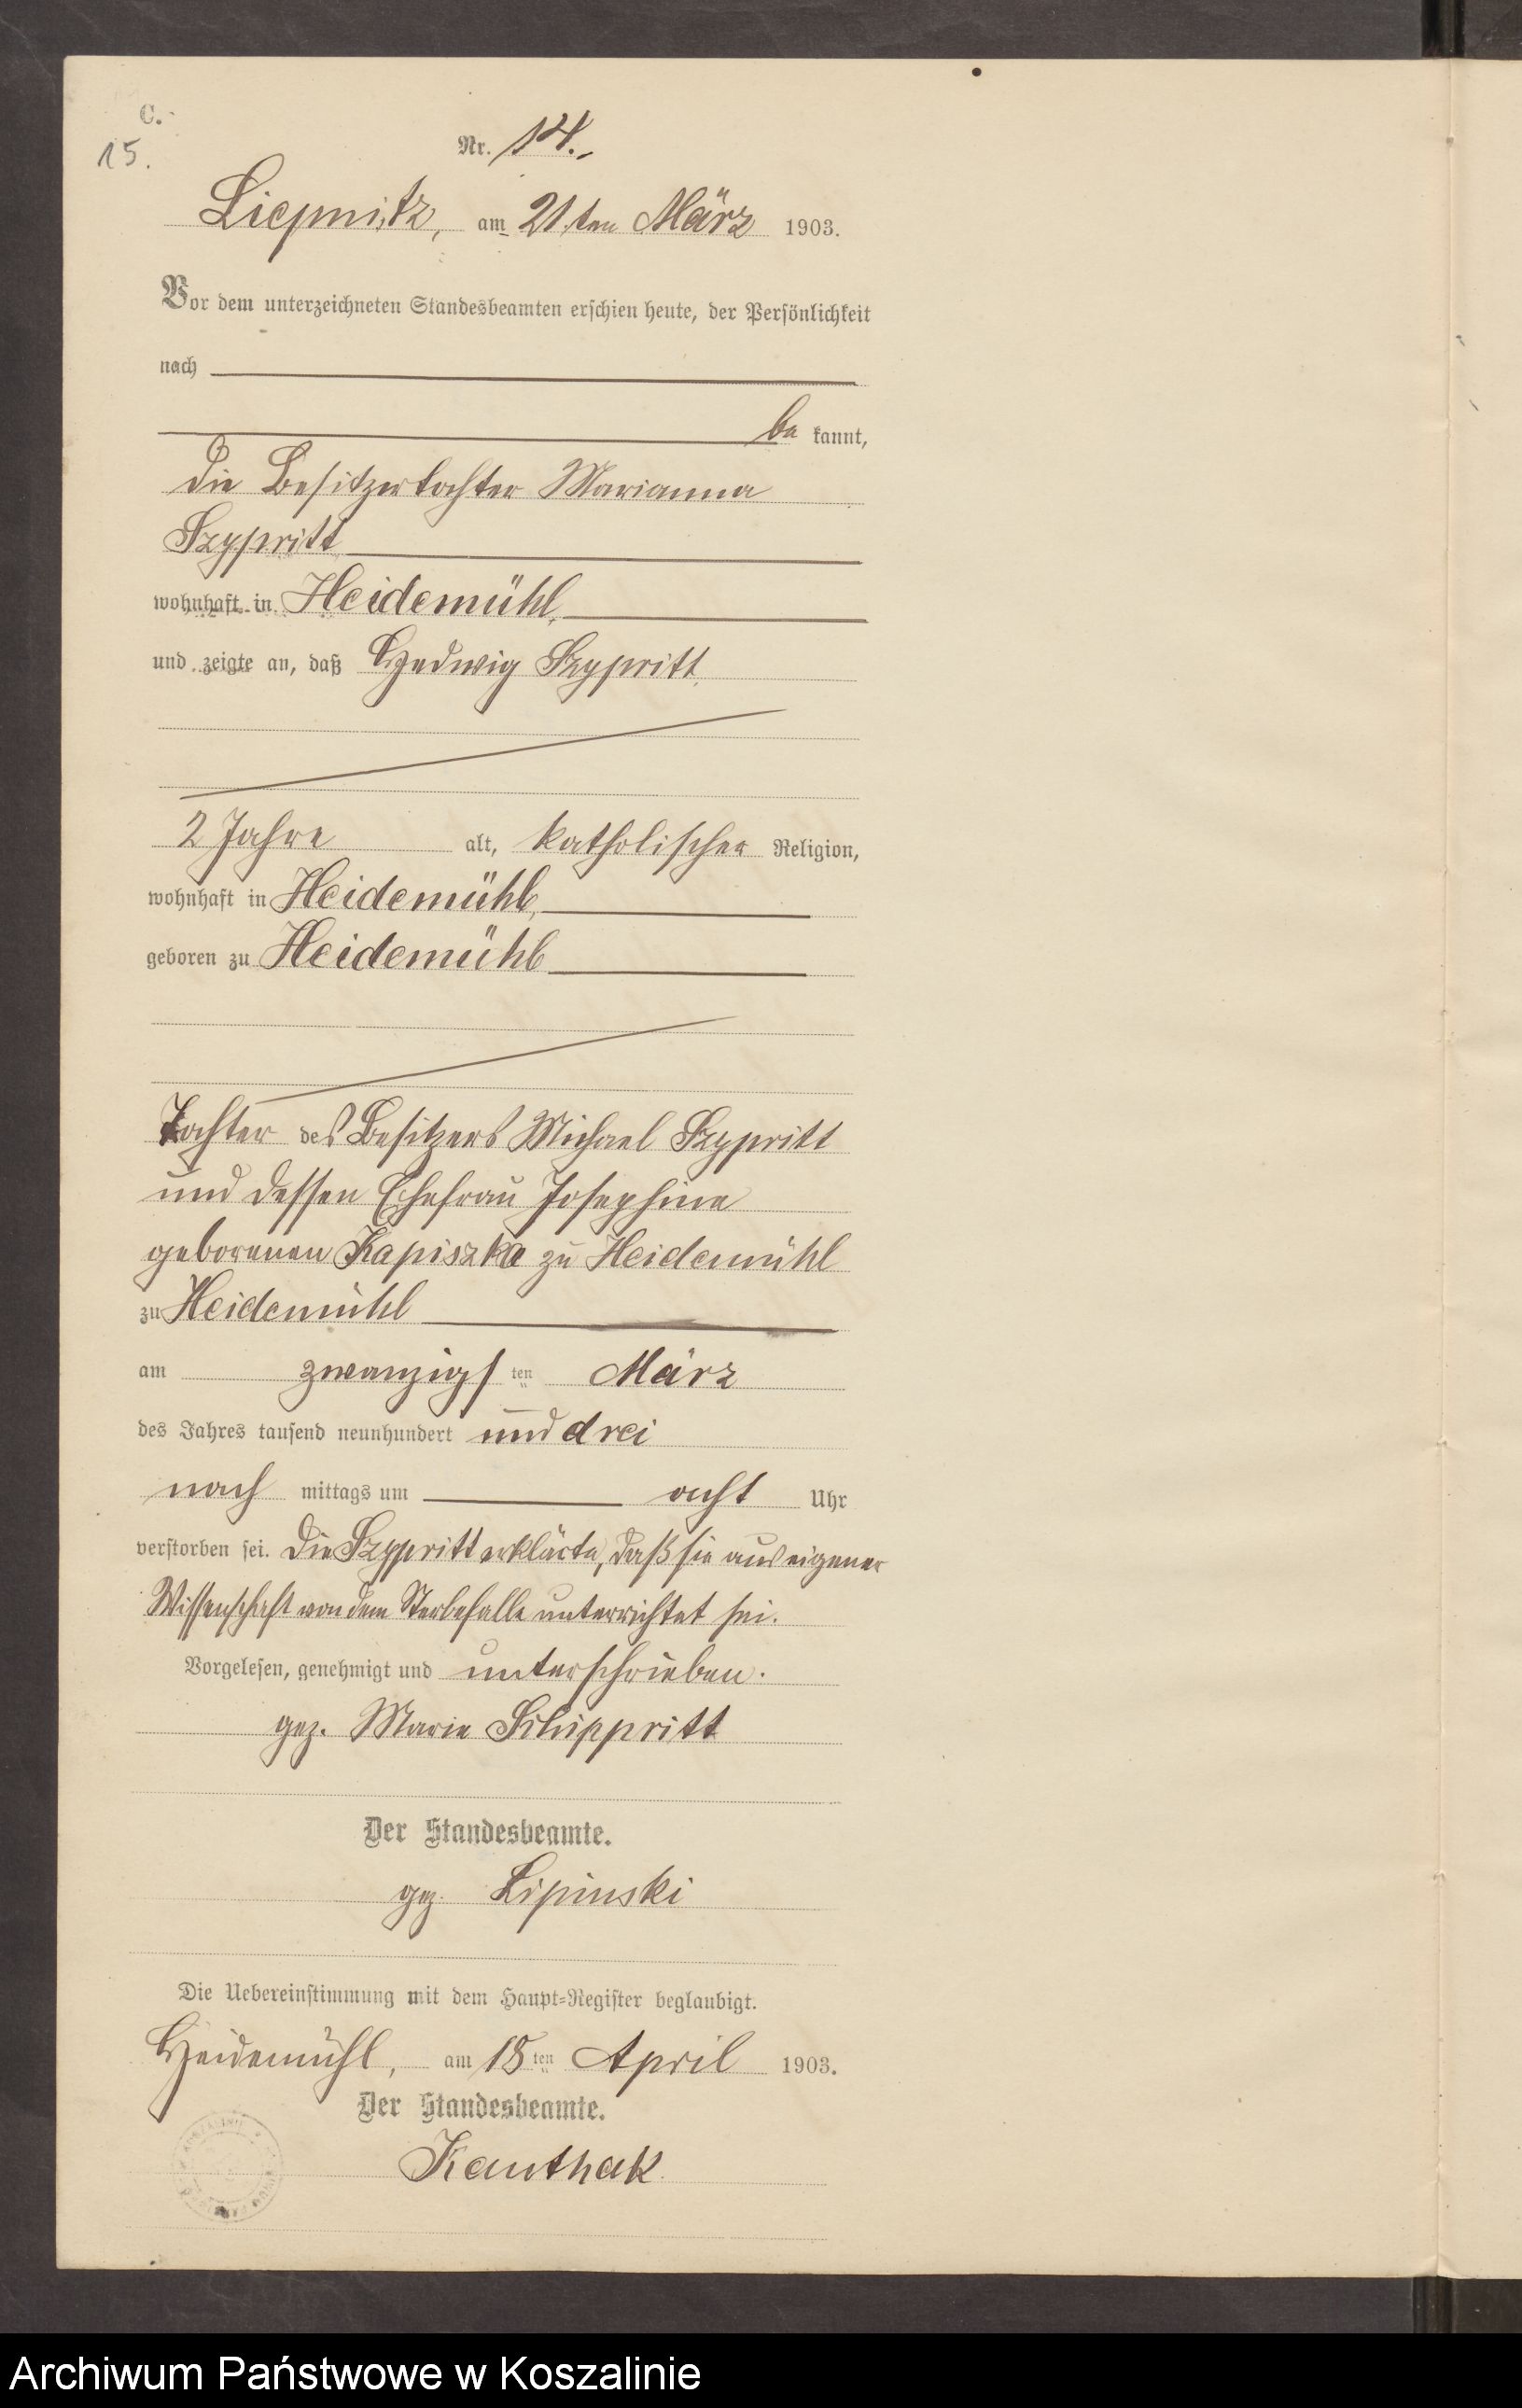 C.
15.
Nr. 14.
Liepnitz, am 21.ten März 1903.
Vor dem unterzeichneten Standesbeamten erschien heute, der Persönlichkeit
nach
be kannt,
die Besitzertochter Marianna
Szypritt
wohnhaft in Heidemühl,
und zeigte an, daß Hedwig Szypritt
2 Jahre alt, katholischer Religion,
wohnhaft in Heidemühl,
geboren zu Heidemühl
Tochter des Besitzers Michael Szypritt
und dessen Ehefrau Josephine
geborenen Kapiszka zu Heidemühl
zu Heidemühl
am zwanzigsten März
des Jahres tausend neunhundert und drei
nach mittags um acht Uhr
verstorben sei. Die Szypritt erklärte, daß sie aus eigener
Wissenschaft von dem Sterbefalle unterrichtet sei.
Vorgelesen, genehmigt und unterschrieben.
gez. Marie Schippritt
Der Standesbeamte.
gez. Lipinski
Die Uebereinstimmung mit dem Haupt-Register beglaubigt.
Heidemühl, am 18ten April 1903.
Der Standesbeamte.
Kauthak
Archiwum Państwowe w Koszalinie